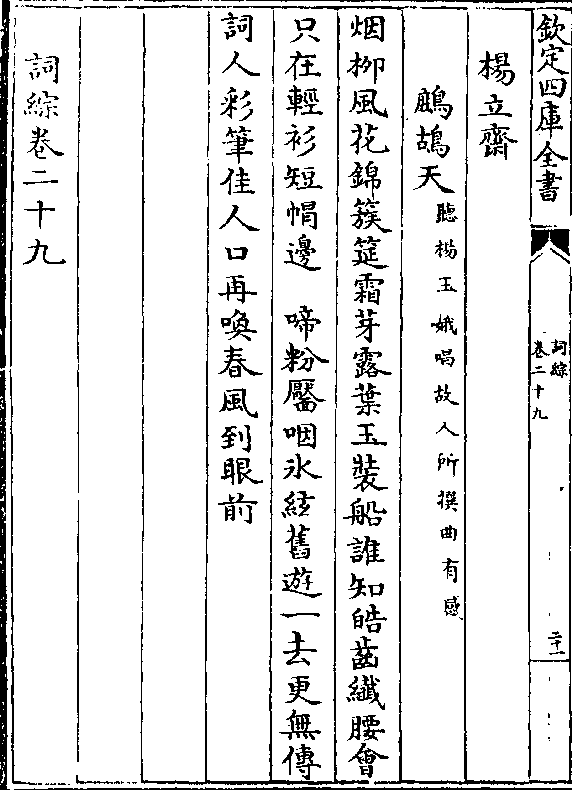 欽定四庫全書
詞綜
卷二十九
二十一
楊立齋
鷓鴣天聽楊玉娥唱故人所撰曲有感
烟栁風花錦簇筵霜芽露葉玉裝船誰知皓齒纖腰會
只在輕衫短帽邊　啼粉靨咽氷絃舊遊一去更無傳
詞人彩筆佳人口再喚春風到眼前
詞綜卷二十九